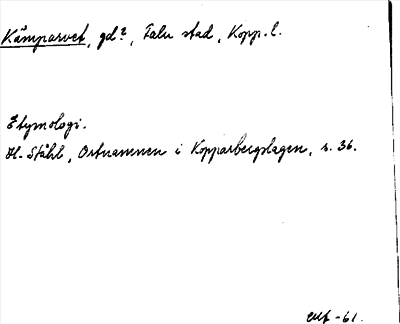 Kämparvet, gd?, Falu stad, Kopp. l.
Etymologi.
H. Ståhl, Ortnamnen i Kopparbergslagen, s. 36.
-61.